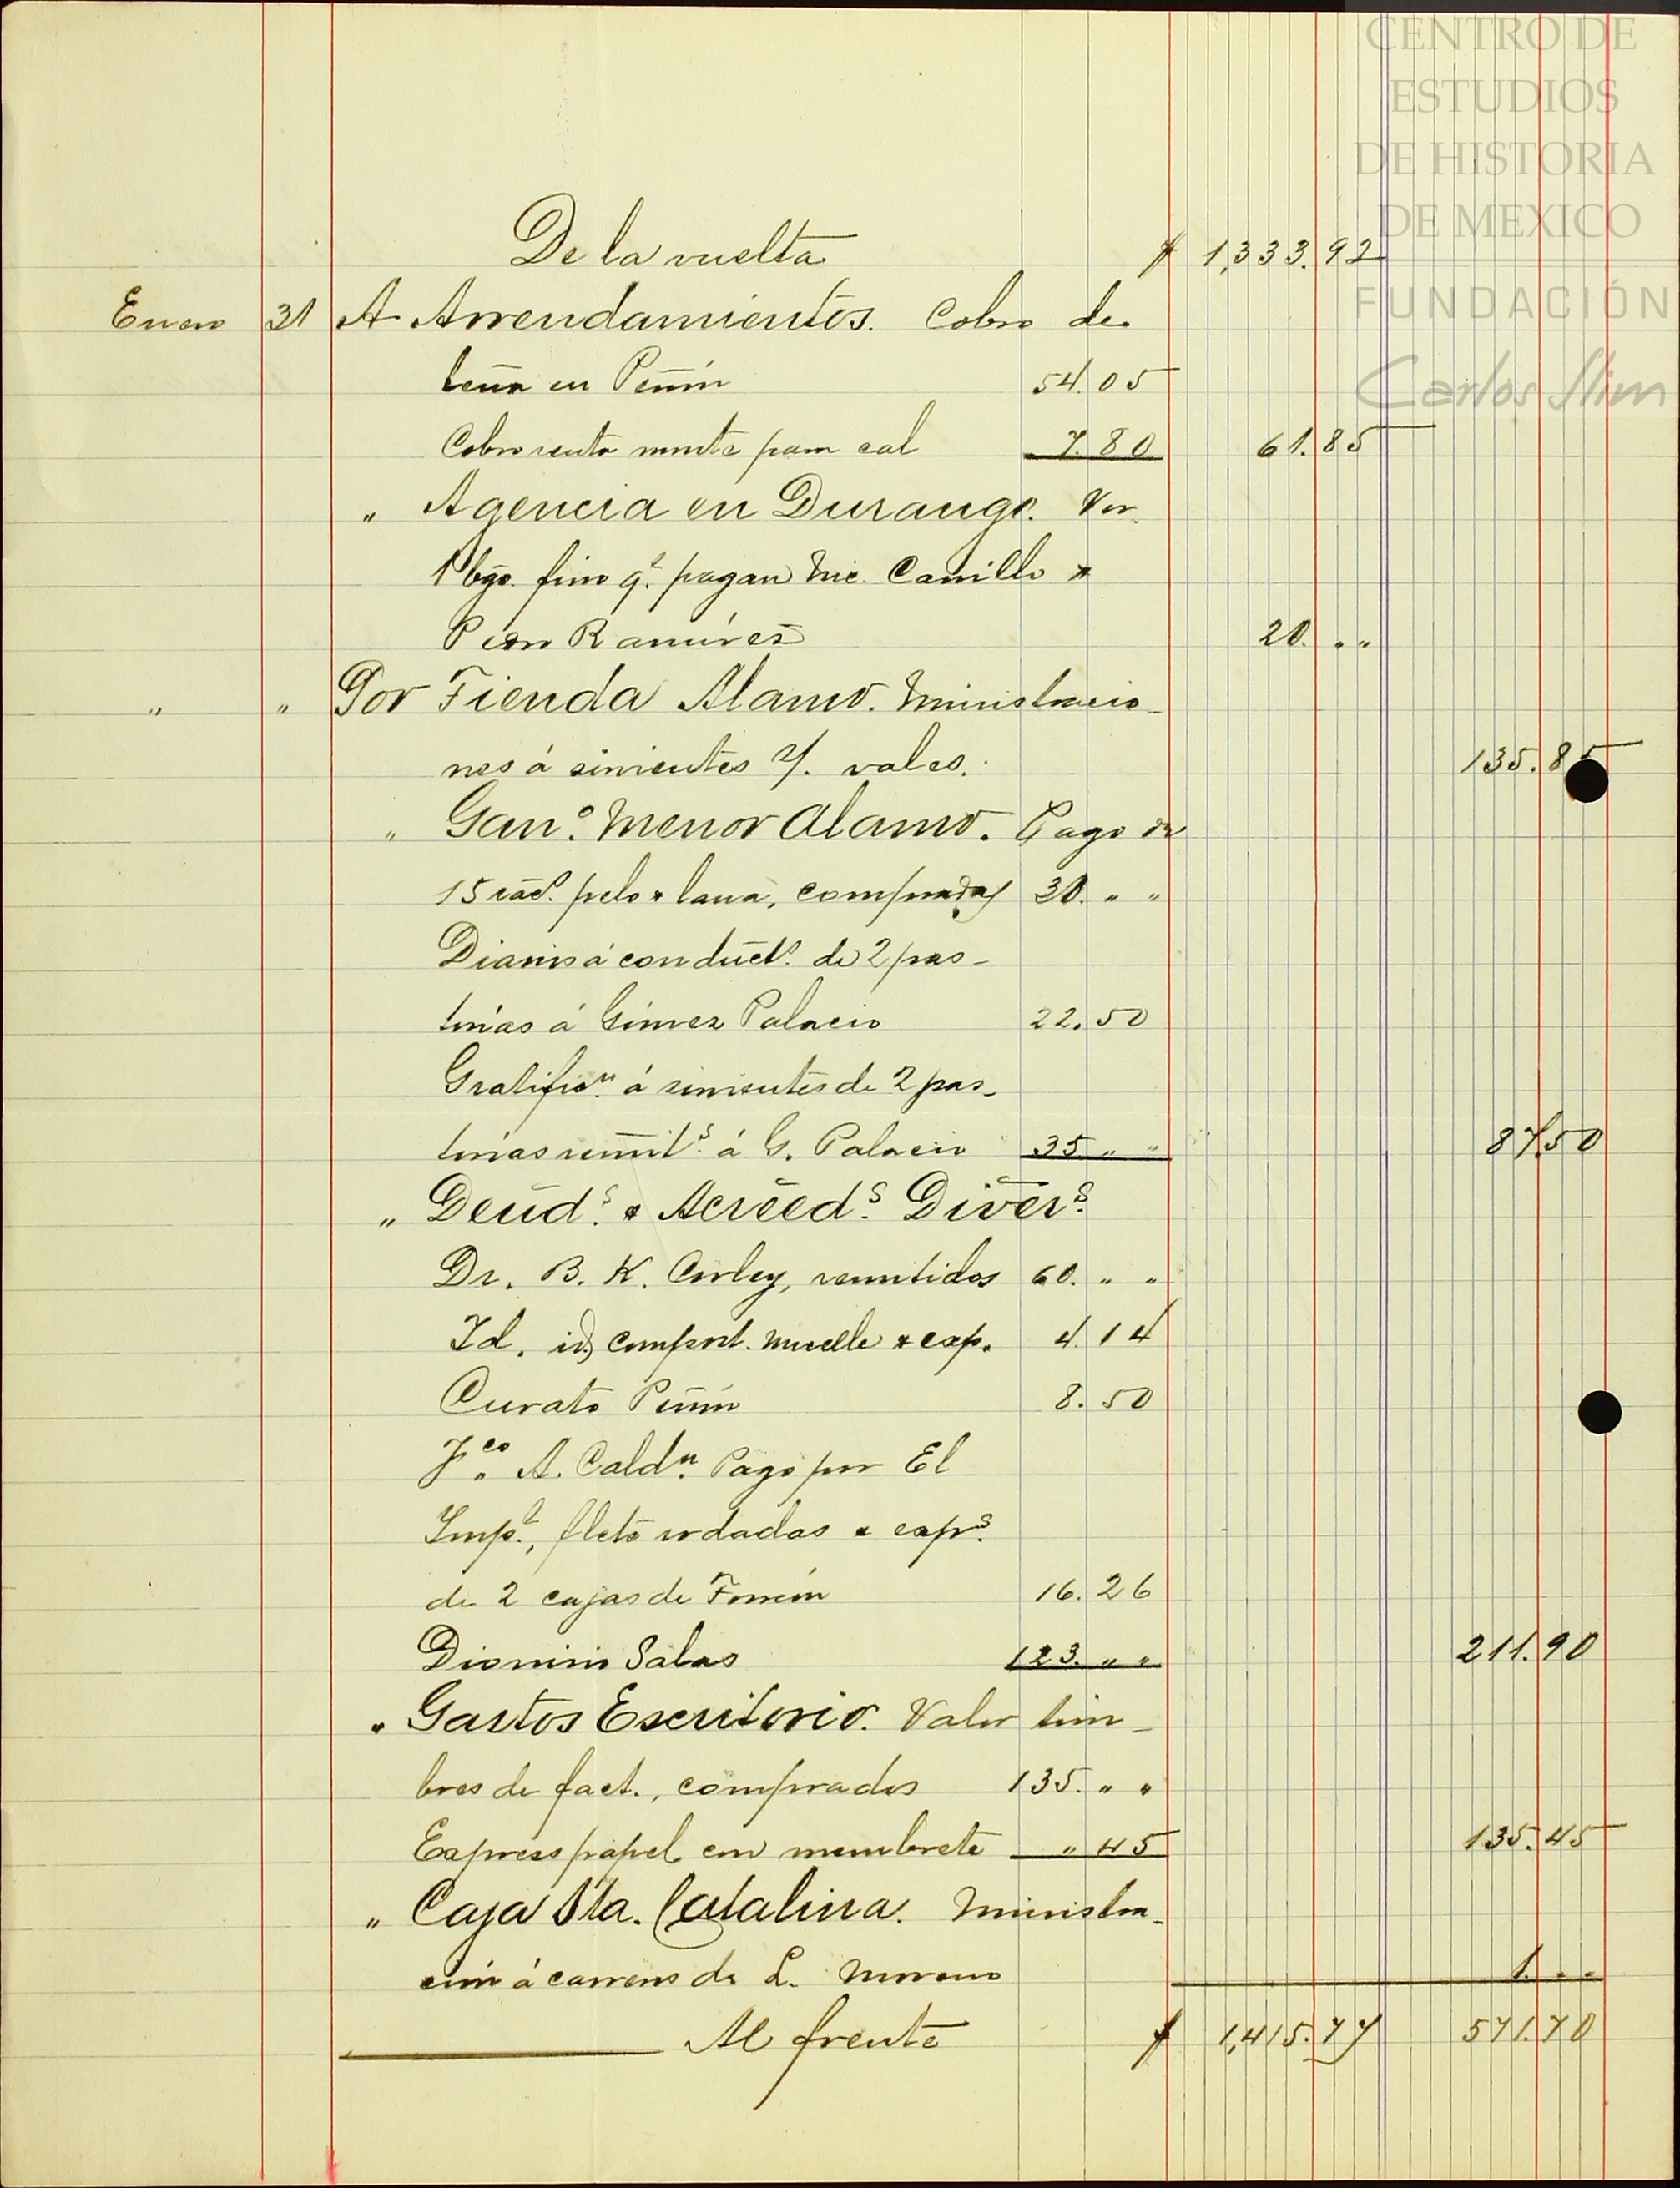 CENTRO DE
ESTUDIOS
DE HISTORIA
DE MEXICO
FUNDACIÓN
Carlos Slim
De la vuelta $ 1,333.92
Enero 31 A Arrendamientos. Cobro de
leña en Peñón 54.05
Cobro renta monte para cal 7.80 61.85
" Agencia en Durango. Vor.
1 bgo. fino q.e pagan Nic. Carrillo &
Ramírez 20. " "
" " Por Tienda Alamo. Ministracio-
nes á sirvientes s/. vales. 135.85
" Gan.o Menor Alamo. Pago de
15 pelo & lana, comprados 30. " "
Diarios á conduct.s de 2 pas-
torías á Gómez Palacio 22.50
Gratific.n á sirvientes de 2 pas-
torías remit.s á G. Palacio 35 " " 87.50
" Deud.s & Acreed.s Divers.s
Dr. B. K. Corley, remitidos 60. " "
Id. id, comport. muelle & exp. 4.14
Curato Peñón 8.50
F.co A. Cald.n Pago por El
Imp.t, flete rodadas & exp.s
de 2 cajas de Torreón 16.26
Dionisio Salas 123. " " 211.90
" Gastos Escritorio. Valor tim-
bres de fact., comprados 135. " "
Express papel con membrete " 45 135.45
" Caja Sta. Catalina. Ministra-
ción á carreros de L. Moreno 1. " "
Al frente $ 1,415.77 571.70